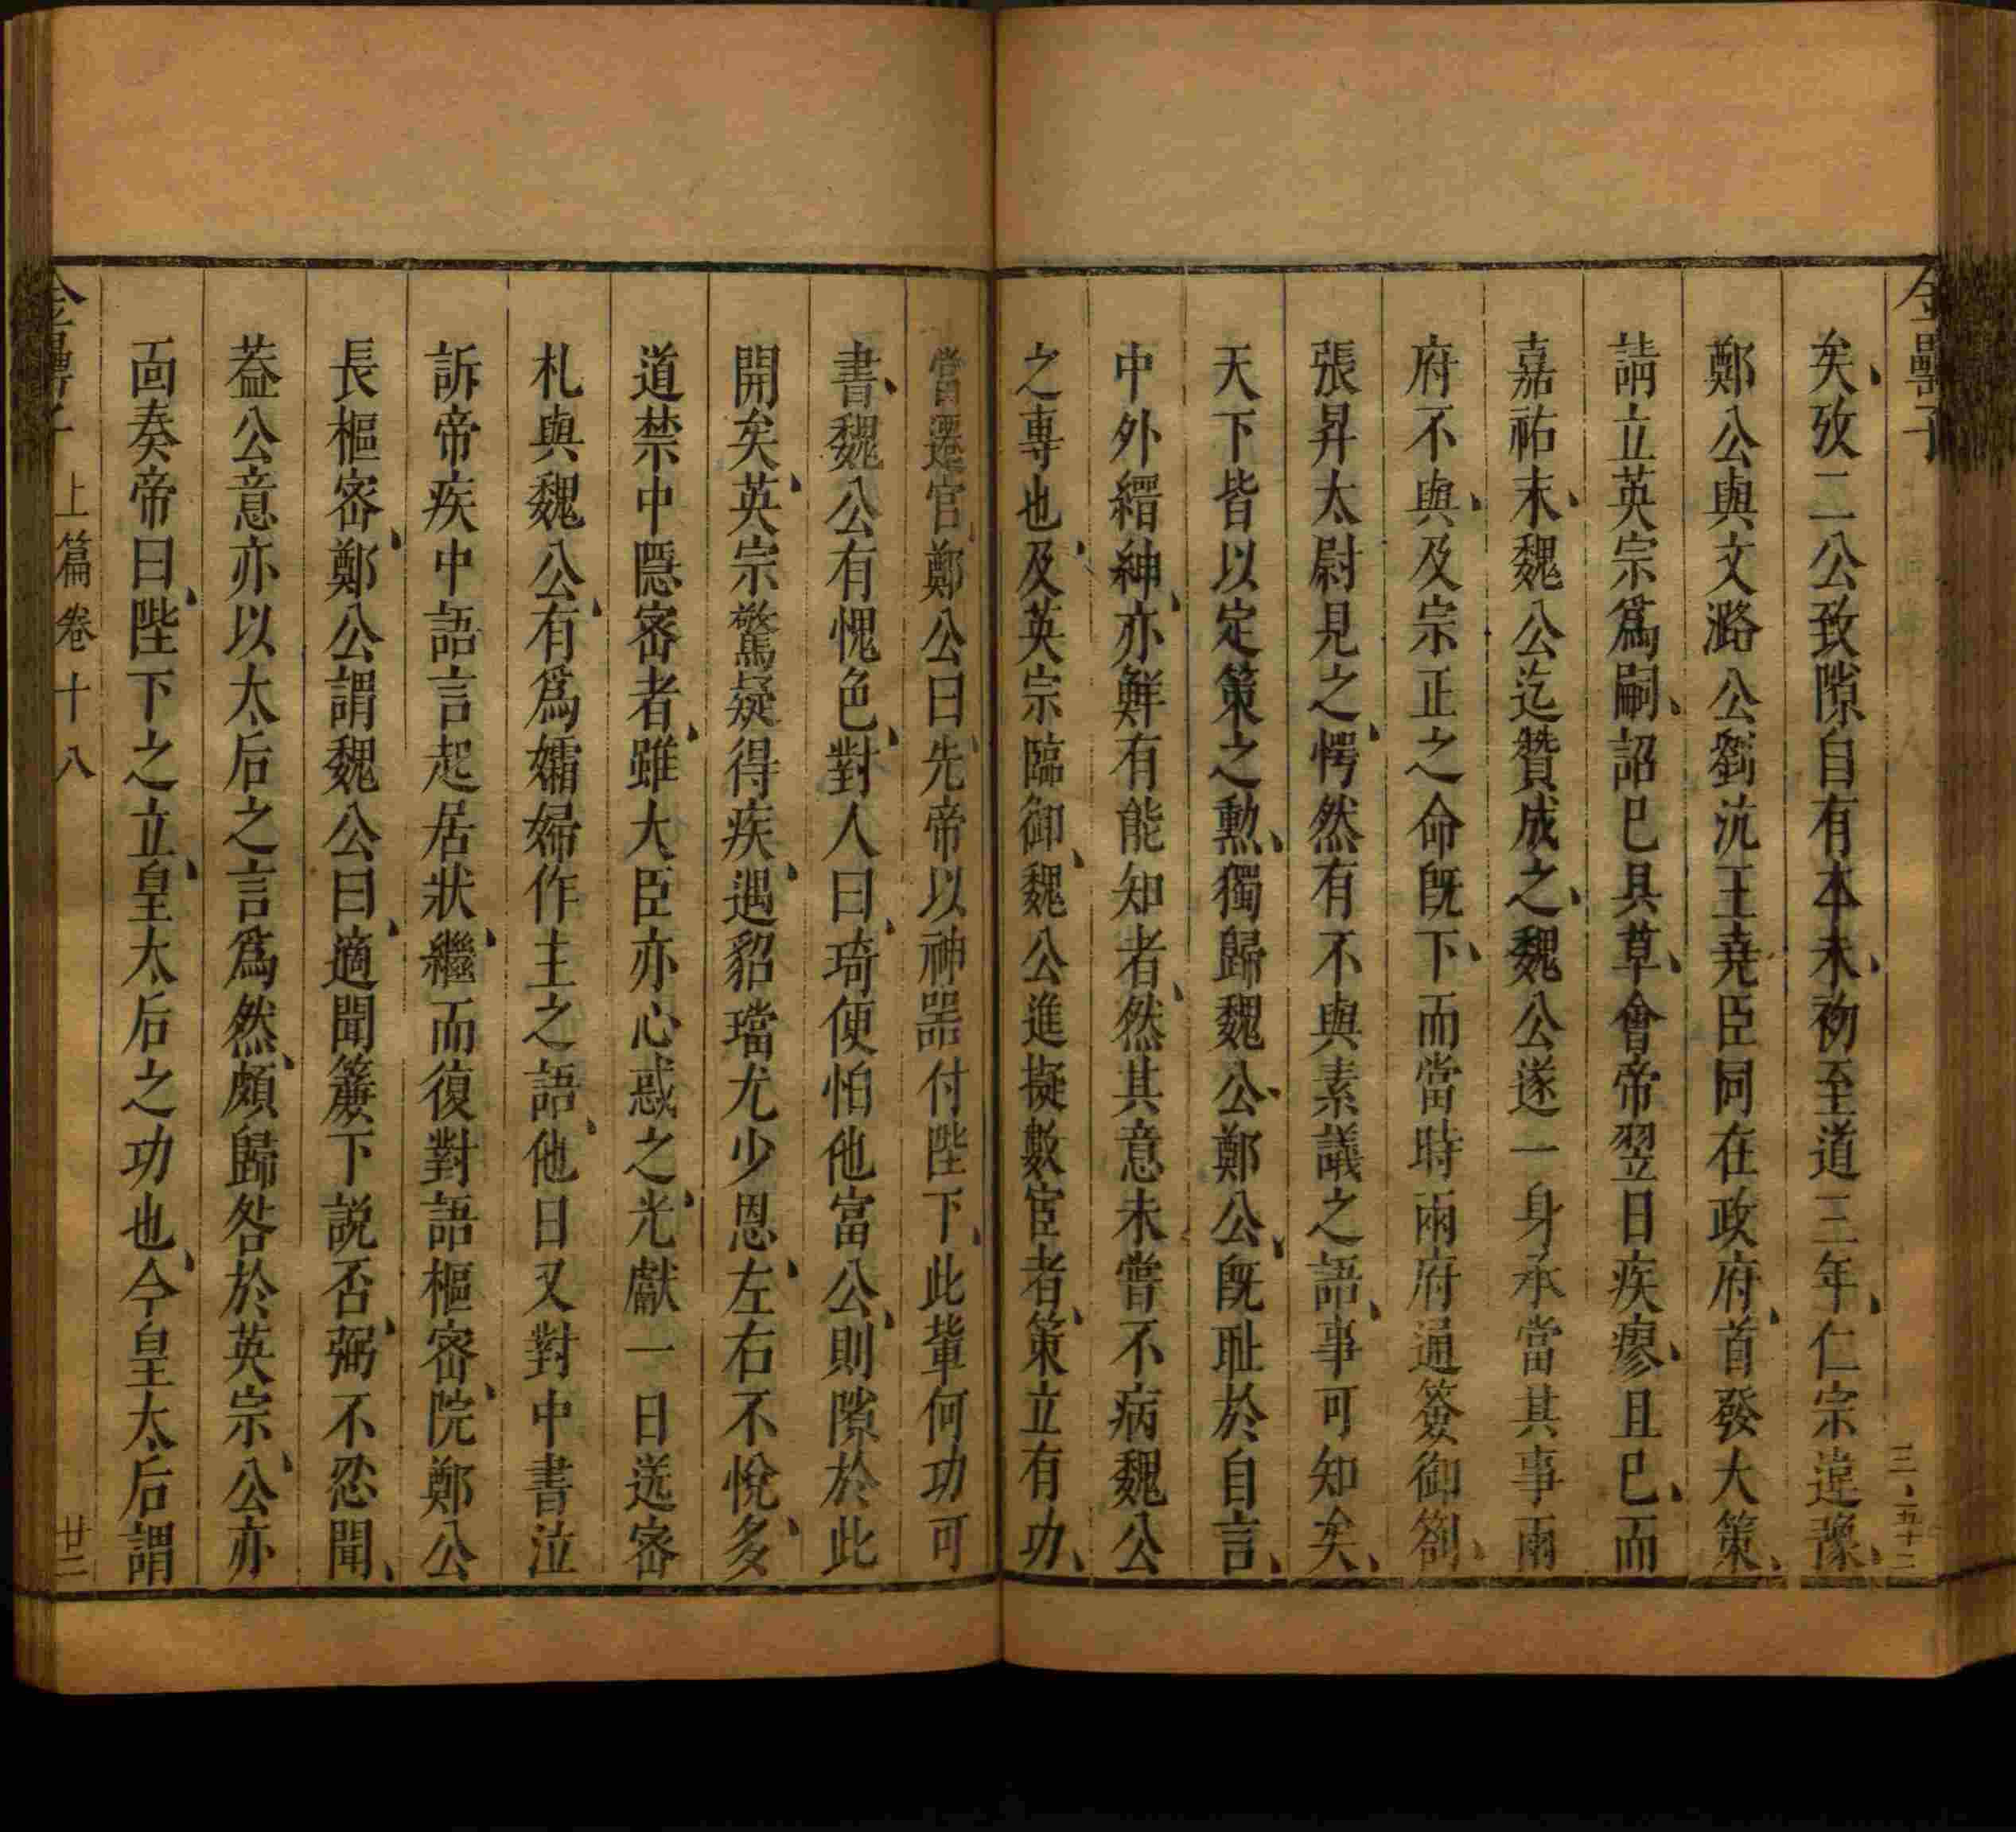 金罍子
三、五十二
矣、攷二公致隙自有本末、初至道三年、仁宗違豫、
鄭公與文潞公劉沆王堯臣同在政府、首發大策、
請立英宗爲嗣、詔已具草、會帝翌日疾瘳、且已、而
嘉祐末、魏公迄贊成之、魏公遂一身承當其事兩
府不與、及宗正之命旣下、而當時兩府通簽御劄、
張昇太尉見之、愕然有不與素議之語、事可知矣、
天下皆以定策之勲、獨歸魏公、鄭公、旣耻於自言、
中外縉紳、亦鮮有能知者、然其意未嘗不病魏公
之專也、及英宗臨御、魏公進擬數宦者、策立有功、
當遷官、鄭公曰、先帝以神噐付陛下、此輩何功可
書、魏公有愧色、對人曰、琦便怕他富公、則隙於此
開矣、英宗驚疑得疾、遇貂璫尤少恩、左右不悅、多
道禁中隱宻者、雖大臣亦心惑之、光獻一日送宻
札與魏公、有爲孀婦作主之語、他日又對中書泣
訴帝疾中語言起居狀、繼而復對語樞宻、院鄭公
長樞宻、鄭公謂魏公曰、適聞簾下説否、弼不忍聞、
葢公意亦以太后之言爲然、頗歸咎於英宗、公亦
面奏帝曰、陛下之立、皇太后之功也、今皇太后謂
金罍子 上篇卷十八 廿二